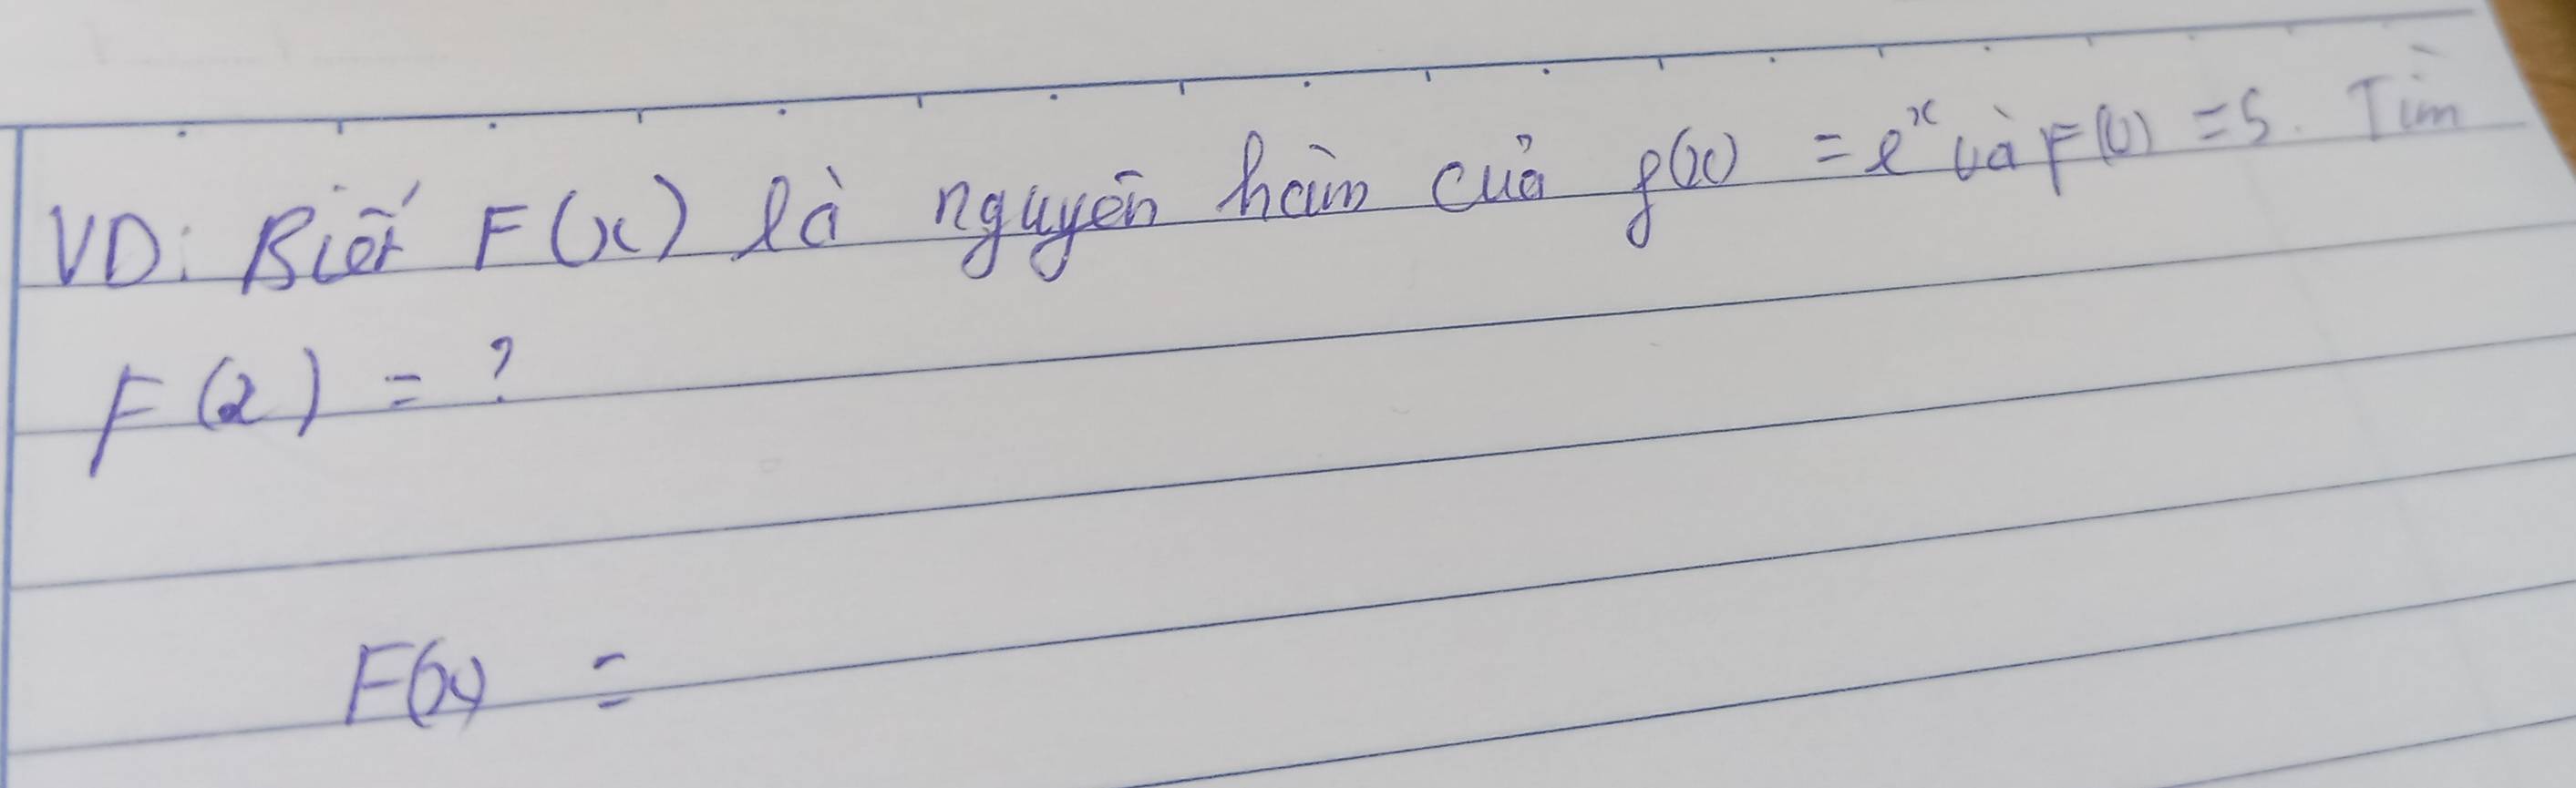 VD: Biết F(x) là nguyên hàm của f(x) = e^x và F(0) = 5. Tìm
F(2) = ?
F(x) =